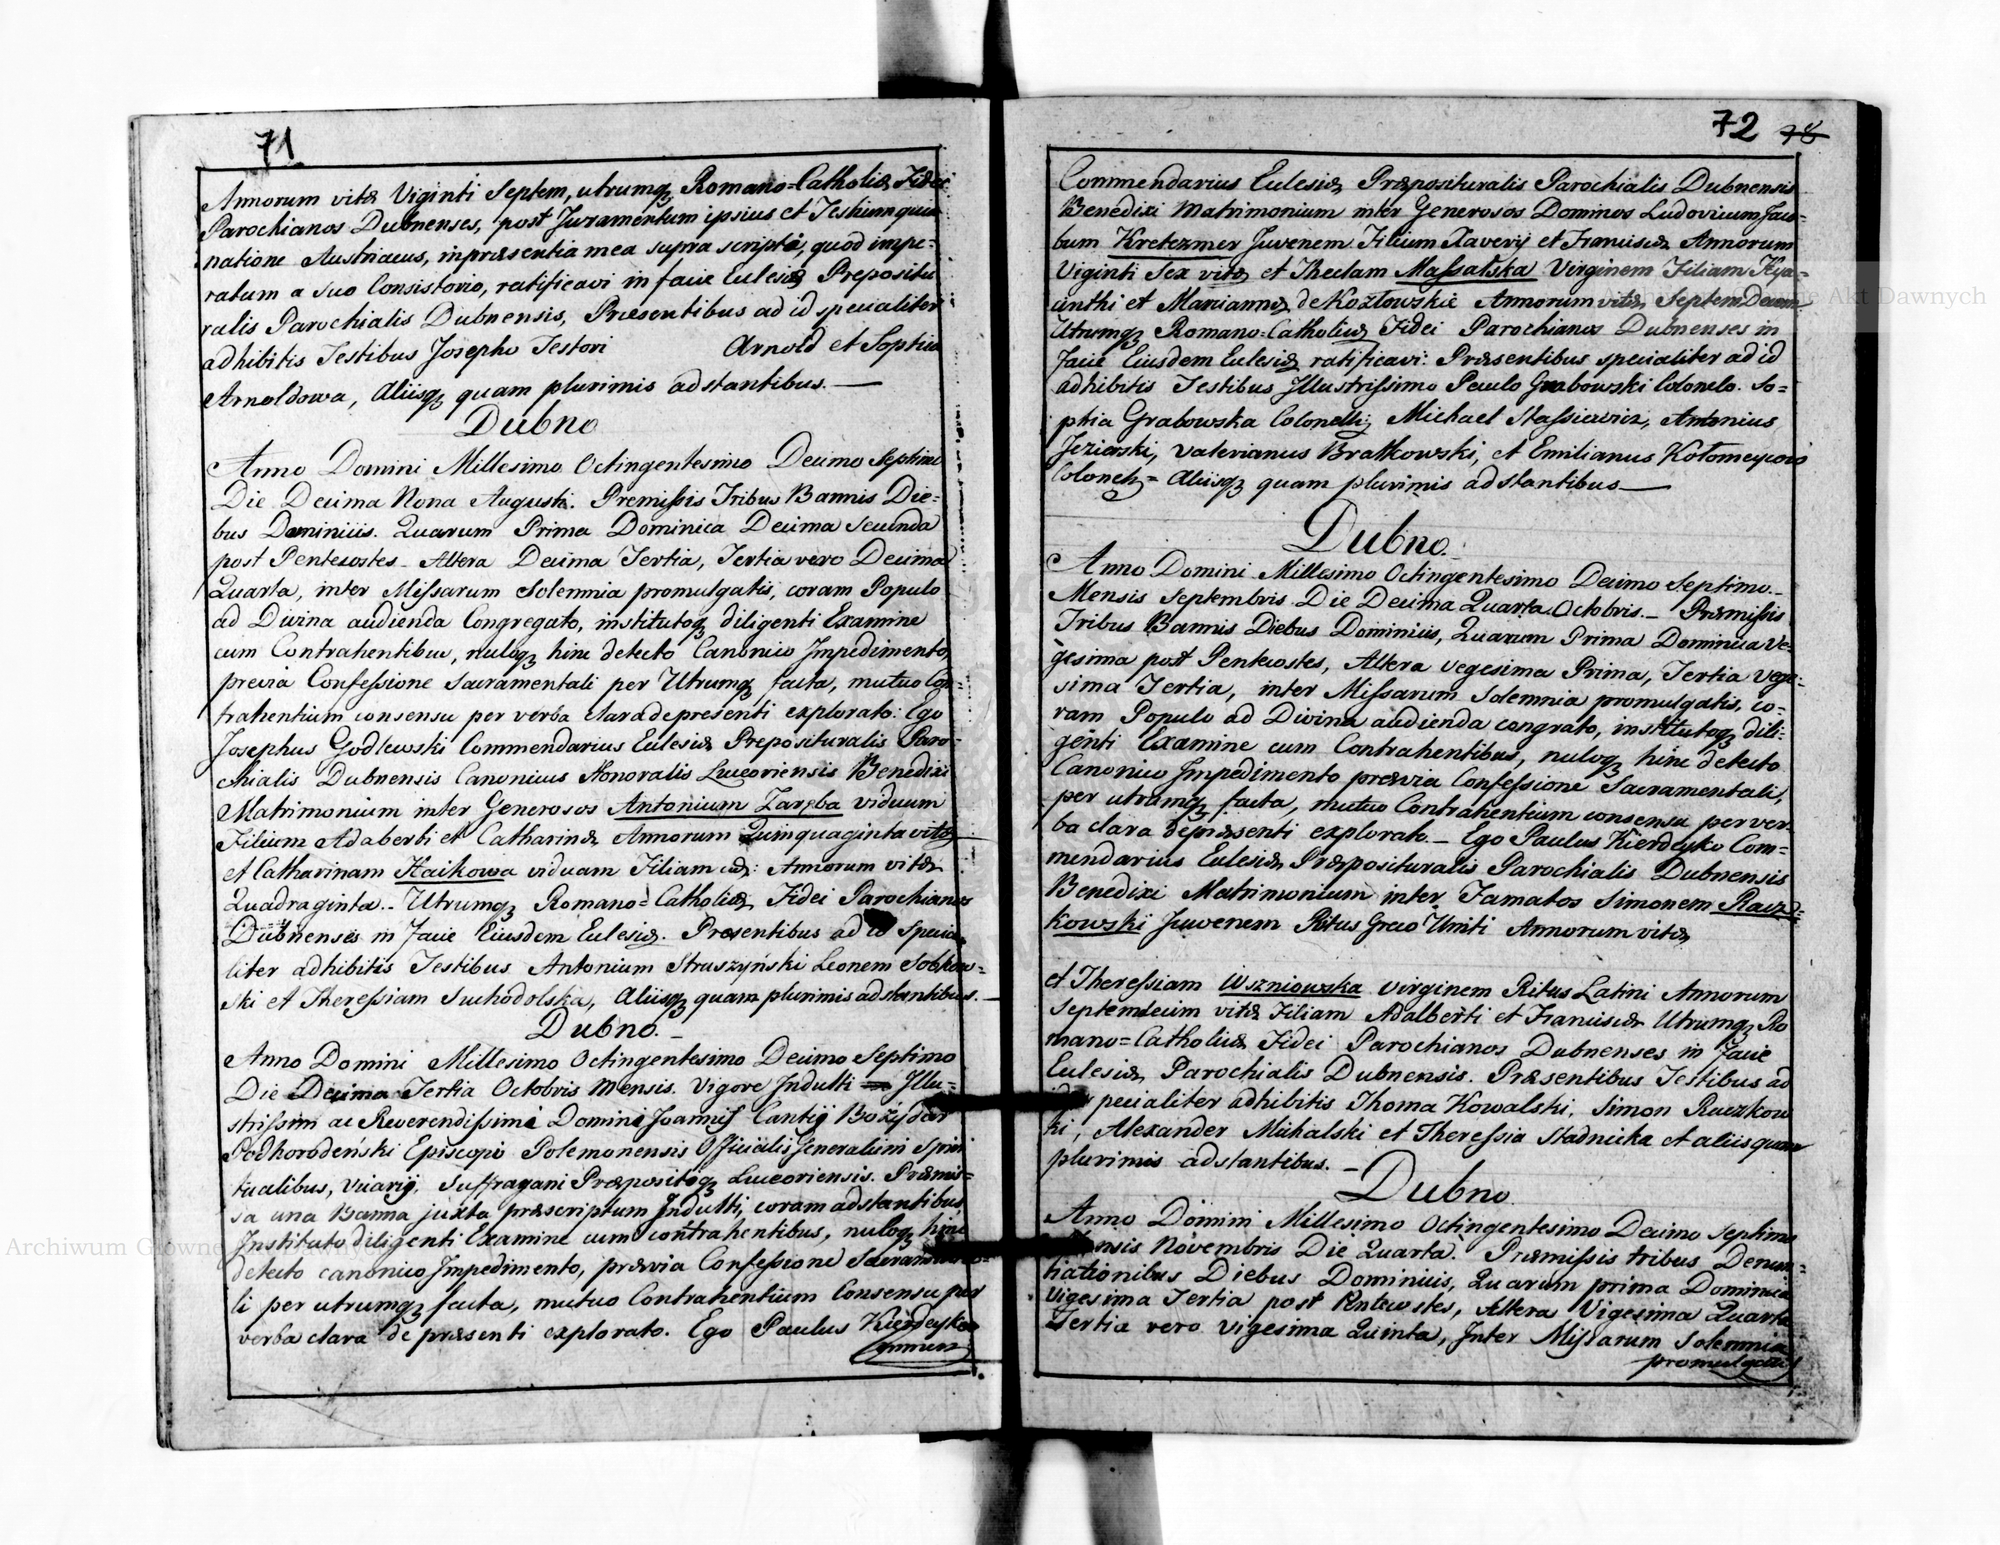 71
Annorum vitæ Viginti Septem, utrumqȝ Romano=Catholicæ Fidei
Parochianos Dubnenses, post Juramentum ipsius et Testium quia
natione Austriacus, in præsentia mea supra scripta, quod impe=
ratum a suo Consistorio, ratificavi in facie Eclesiæ Prepositu
ralis Parochialis Dubnensis, Præsentibus ad id specialiter
adhibitis Testibus Josepho Testori Arnold et Sophia
Arnoldowa, Aliisqȝ quam plurimis adstantibus. —
Dubno
Anno Domini Millesimo Octingentesimo Decimo Septimo
Die Decima Nona Augusti. Premissis Tribus Bannis Die=
bus Dominicis. Quarum Prima Dominica Decima Secunda
post Pentecostes - Altera Decima Tertia, Tertia vero Decima
Quarta, inter Missarum Solemnia promulgatis, coram Populo
ad Divina audienda Congregato, institutoqȝ diligenti Examine
cum Contrahentibus, nuloqȝ hinc detecto Canonico Impedimento,
previa Confessione Sacramentali per Utrumqȝ facta, mutuo Con=
trahentium consensu per verba clara de presenti explorato: Ego
Josephus Godlewski Commendarius Eclesiæ Preposituralis Paro=
chialis Dubnensis Canonicus Honoralis Luceoriensis Benedixi
Matrimonium inter Generosos Antonium Zaręba viduum
Filium Adalberti et Catharinæ Annorum Quinquaginta vitæ
et Catharinam Haikowa viduam Filiam Annorum vitæ
Quadraginta.- Utrumqȝ Romano=Catholicæ Fidei Parochianos
Dubnenses in Facie Eiusdem Eclesiæ. Præsentibus ad id Specia=
liter adhibitis Testibus Antonium Struszyński Leonem Sobkow=
ski et Theressiam Suchodolska, Aliisqȝ quam plurimis adstantibus. —
Dubno. —
Anno Domini Millesimo Octingentesimo Decimo Septimo
Die Decima Tertia Octobris Mensis. Vigore Indulti Illu=
strissimi ac Reverendissimi Domini Joannis Cantij Bożydar
Podhorodeński Episcopi Polemonensis Officialis Generalium Spiri
tualibus, Vicarij, Suffragani Præpositoqȝ Luceoriensis. Præmis=
sa una Banna juxta præscriptum Indulti, coram adstantibus
Instituto diligenti Examine cum contrahentibus, nuloqȝ hinc
detecto canonico Impedimento, prævia Confessione Sacramenta=
li per utrumqȝ facta, mutuo Contrahentium Consensu per
verba clara de præsenti explorato. Ego Paulus Kierdeyko
72 78
Commendarius Eclesiæ Præposituralis Parochialis Dubnensis
Benedixi Matrimonium inter Generosos Dominos Ludovicum Jaco=
bum Kretczmer Juvenem Filium Xaverij et Franciscæ Annorum
Viginti Sex vitæ et Theclam Massalska Virginem Filiam Hya=
cinthi et Mariannæ de Kozłowskie Annorum vitæ Septem Decem
Utrumqȝ Romano=Catholicæ Fidei Parochianos Dubnenses in
Facie Eiusdem Eclesiæ ratificavi: Præsentibus specialiter ad id
adhibitis Testibus Illustrissimo Paulo Grabowski Colonelo. So=
phia Grabowska Colonelli, Michael Stassiewicz, Antonius
Jezierski, Valerianus Bratkowski, et Emilianus Kołomeycow
Aliisqȝ quam plurimis adstantibus —
Dubno.
Anno Domini Millesimo Octingentesimo Decimo Septimo.-
Mensis Septembris Die Decima Quarta Octobris.- Præmissis
Tribus Bannis Diebus Dominicis, Quarum Prima Dominica Ve=
gesima post Pentecostes, Altera vegesima Prima, Tertia vege=
sima Tertia, inter Missarum Solemnia promulgatis, co=
ram Populo ad Divina audienda congrato, institutoqȝ dili=
genti Examine cum Contrahentibus, nuloqȝ hinc detecto
Canonico Impedimento prævia Confessione Sacramentali,
per utrumqȝ facta, mutuo Contrahentium consensu per ver=
ba clara de præsenti explorato.- Ego Paulus Kierdeyko Com=
mendarius Eclesiæ Præposituralis Parochialis Dubnensis
Benedixi Matrimonium inter Famatos Simonem Raczz=
kowski Juvenem Ritus Greco Uniti Annorum vitæ
et Theressiam Wszniowska virginem Ritus Latini Annorum
Septemdecim vitæ Filiam Adalberti et Franciscæ Utrumqȝ Ro
mano=Catholicæ Fidei Parochianos Dubnenses in Facie
Eclesiæ Parochialis Dubnensis. Præsentibus Testibus ad
pecialiter adhibitis Thoma Kowalski, Simon Raczkow
ki, Alexander Michalski et Theressia Stadnicka et aliis quam
plurimis adstantibus. —
Dubno
Anno Domini Millesimo Octingentesimo Decimo Septimo
ensis Novembris Die Quarta. Præmissis tribus Denun=
tiationibus Diebus Dominicis, Quarum prima Dominica
Vigesima Tertia post Pentecostes, Altera Vigesima Quarta
Tertia vero vigesima Quinta, Inter Missarum Solemnia
promulgatis
Archiwum Główne Akt Dawnych